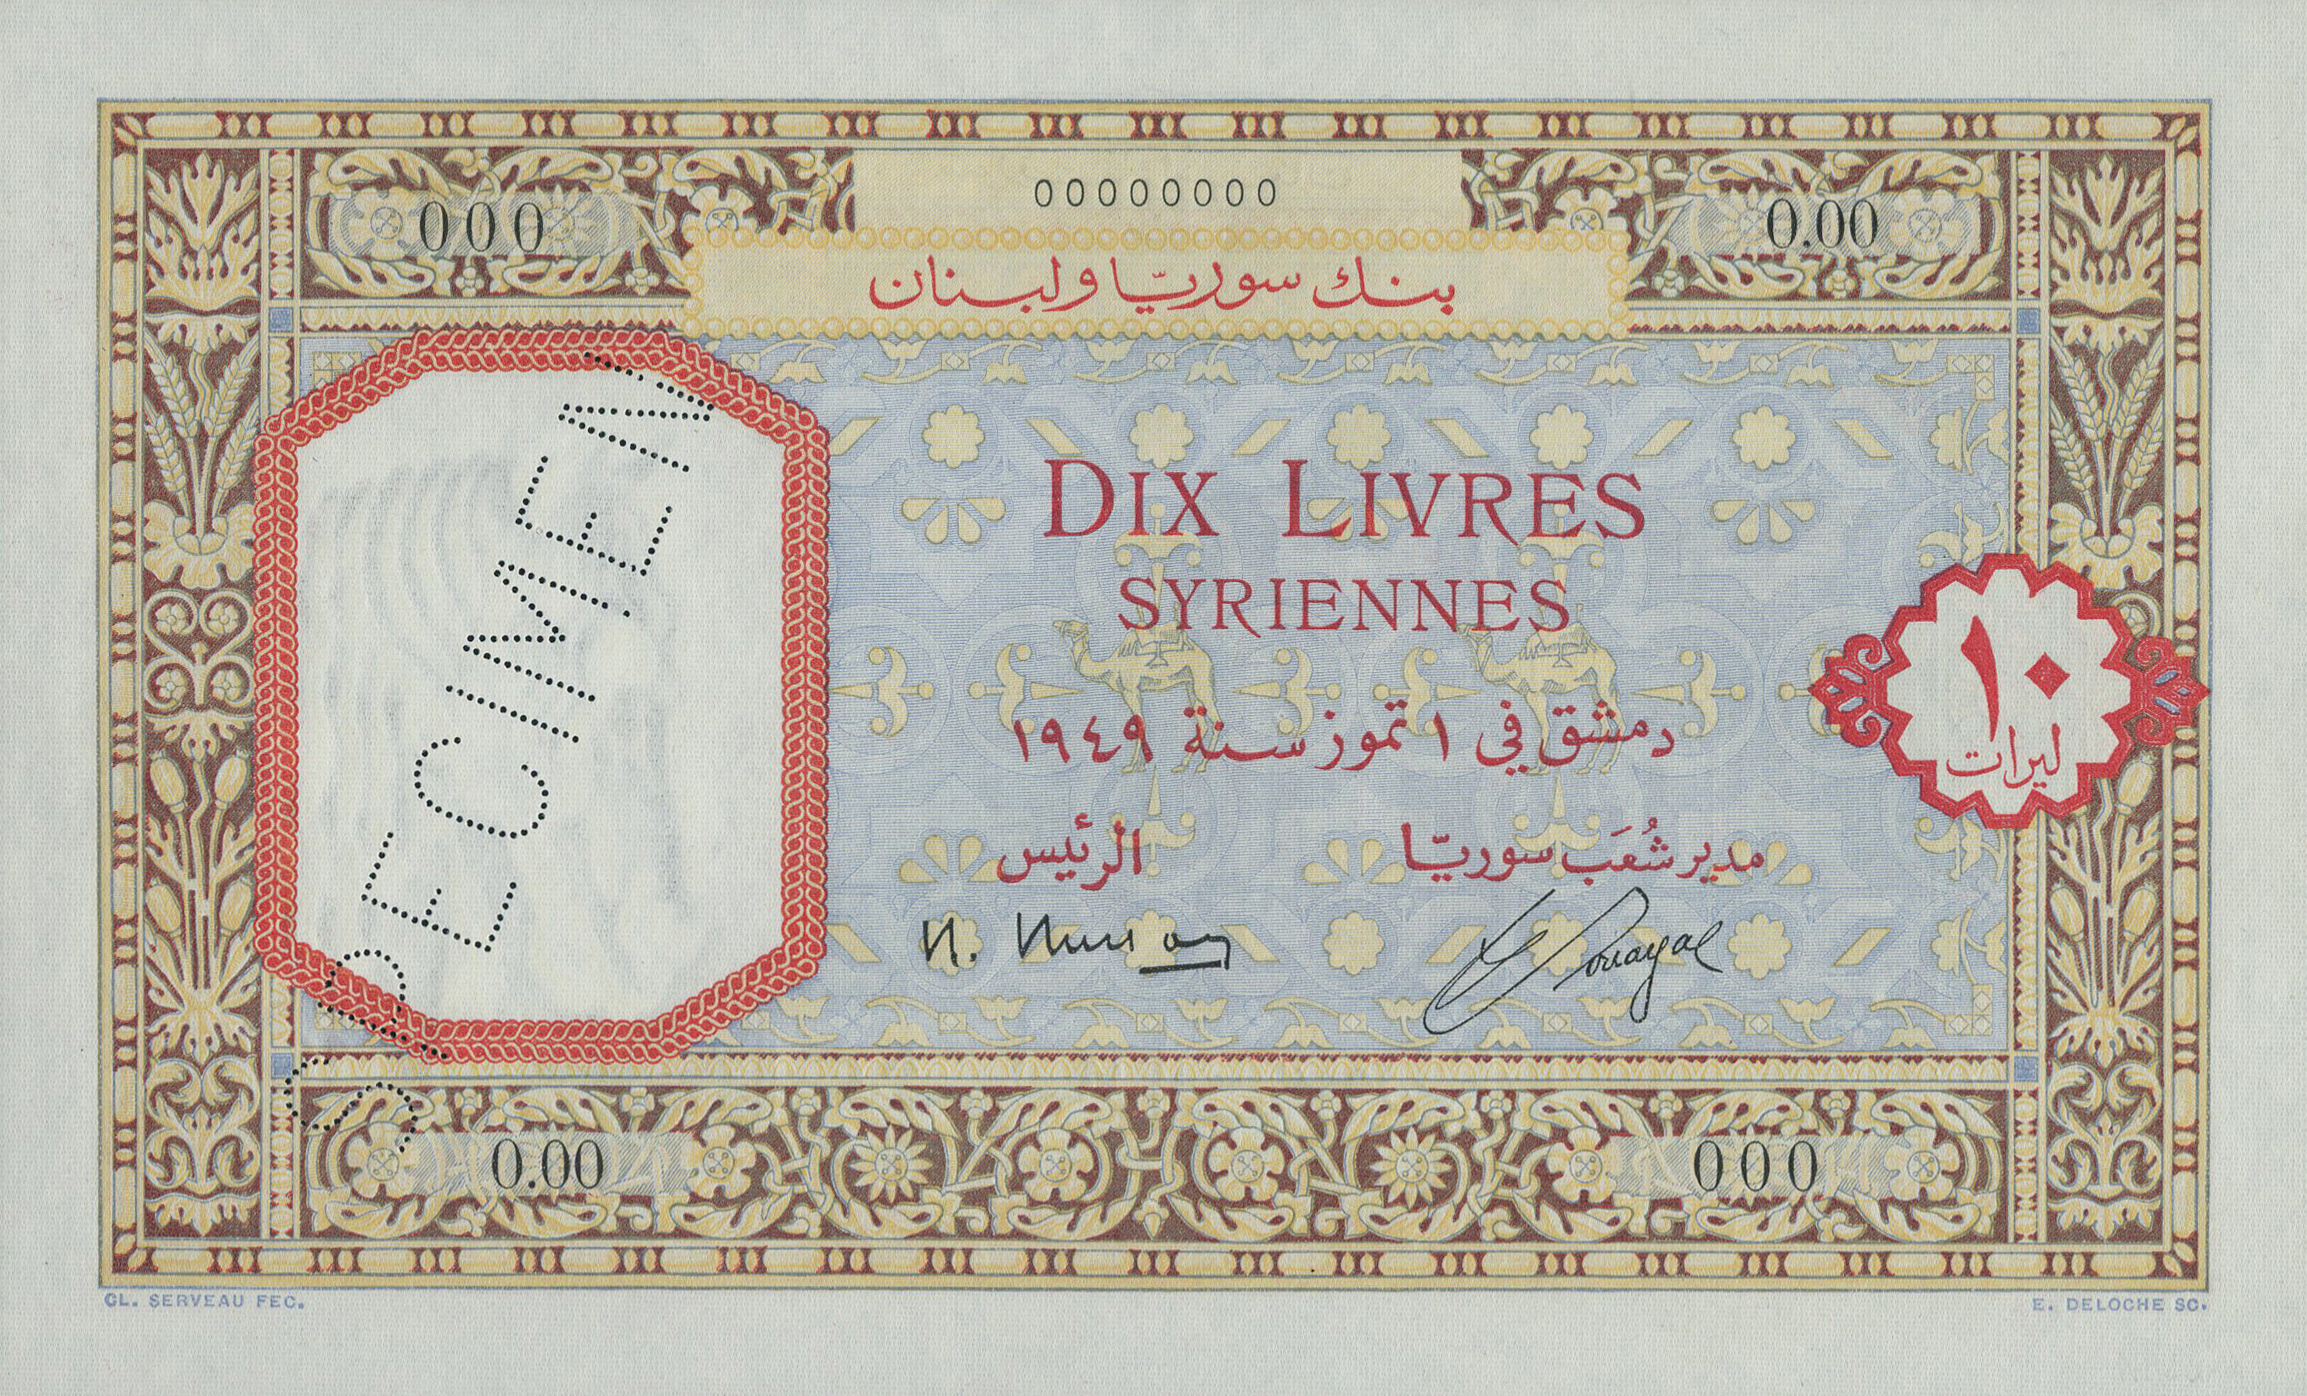 00000000
000
0.00
بنك سوريّا ولبنان
SPECIMEN
DIX LIVRES
SYRIENNES
دمشق في ١ تموز سنة ١٩٤٩
١٠
ليرات
مدير شُعَب سوريّا
الرئيس
0.00
000
CL. SERVEAU FEC.
E. DELOCHE SC.